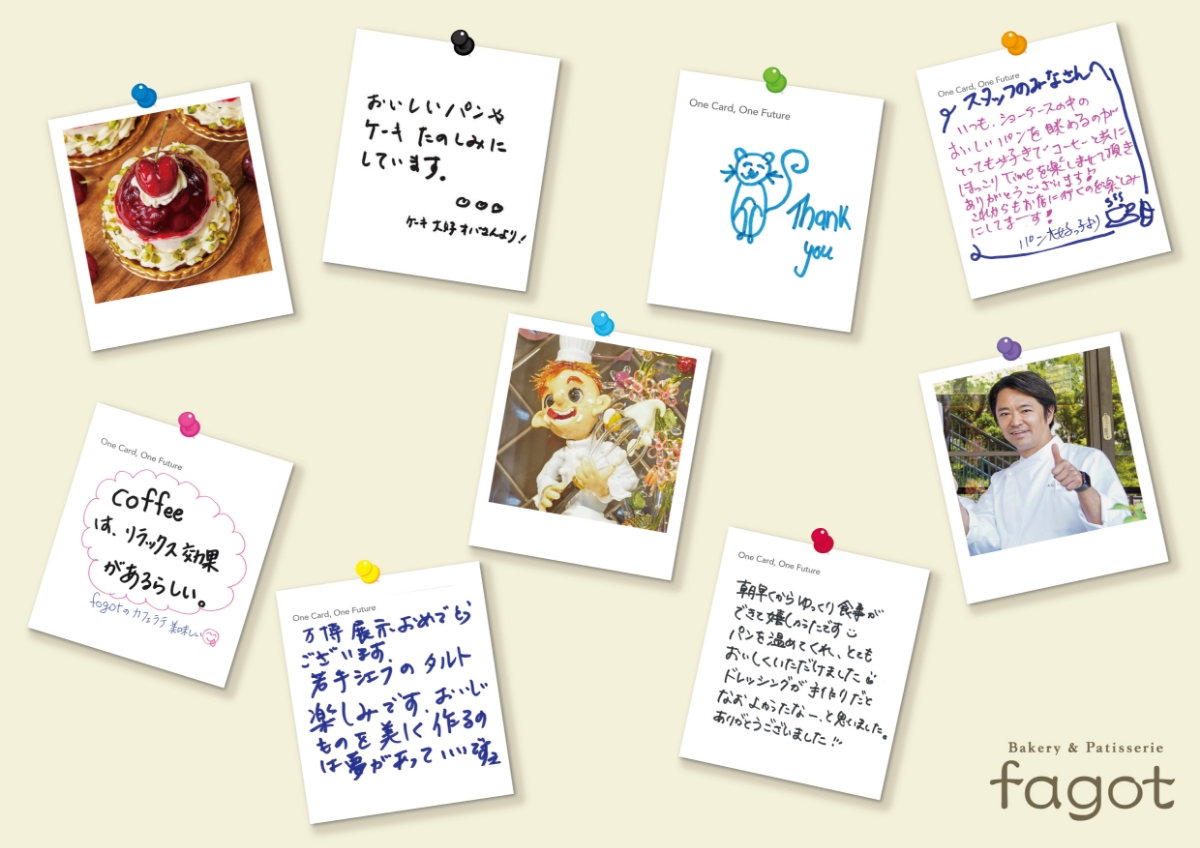 おいしいパンや
ケーキ たのしみに
しています。
ケーキ大好きオバさんより!
One Card, One Future
Thank
you
One Card, One Future
スタッフのみなさん
いつも、ショーケースの中の
おいしいパンを眺めるのが
とっても好きで コーヒーと共に
ほっこりTimeを楽しませて頂き
ありがとうございます♪
これからもお店に行くのを楽しみ
にしてまーす!
パン大好きっ子より
One Card, One Future
coffee
は、リラックス効果
があるらしい。
fagotのカフェラテ 美味しい
One Card, One Future
万博 展示おめでとう
ございます。
若手シェフの タルト
楽しみです。おいしい
ものを美しく作るの
は夢があって いいですね
One Card, One Future
朝早くからゆっくり食事が
できて嬉しかったです
パンを温めてくれ、とても
おいしくいただけました
ドレッシングが手作りだと
なおよかったなー、と思いました。
ありがとうございました!!
Bakery & Patisserie
fagot